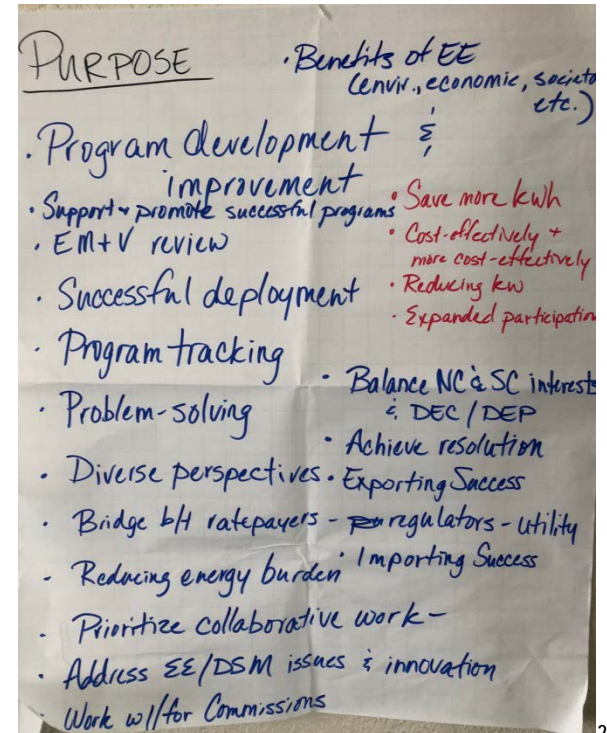 PURPOSE
· Benefits of EE
(envir., economic, societa
etc.)
· Program development &
improvement
· Support + promote successful programs
· EM+V review
· Successful deployment
· Program tracking
· Problem-solving
· Diverse perspectives
· Bridge b/t ratepayers - regulators - utility
· Reducing energy burden
· Prioritize collaborative work -
· Address EE/DSM issues & innovation
· Work w//for Commissions
· Save more kwh
· Cost-effectively +
more cost-effectively
· Reducing kw
· Expanded participation
· Balance NC & SC interests
& DEC/DEP
· Achieve resolution
· Exporting Success
· Importing Success
2